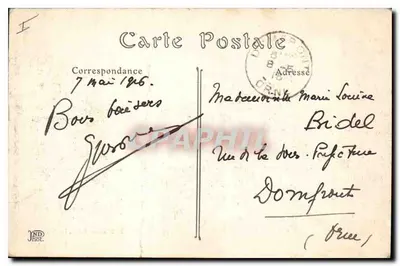 I
Carte Postale
Correspondance
Adresse
ORNE
7 mai 1916
Bons baisers
Mademoiselle Marie Louise
Bidel
Rue de la Sous-Préfecture
Domfront
(Orne)
CPAPHIL
ND